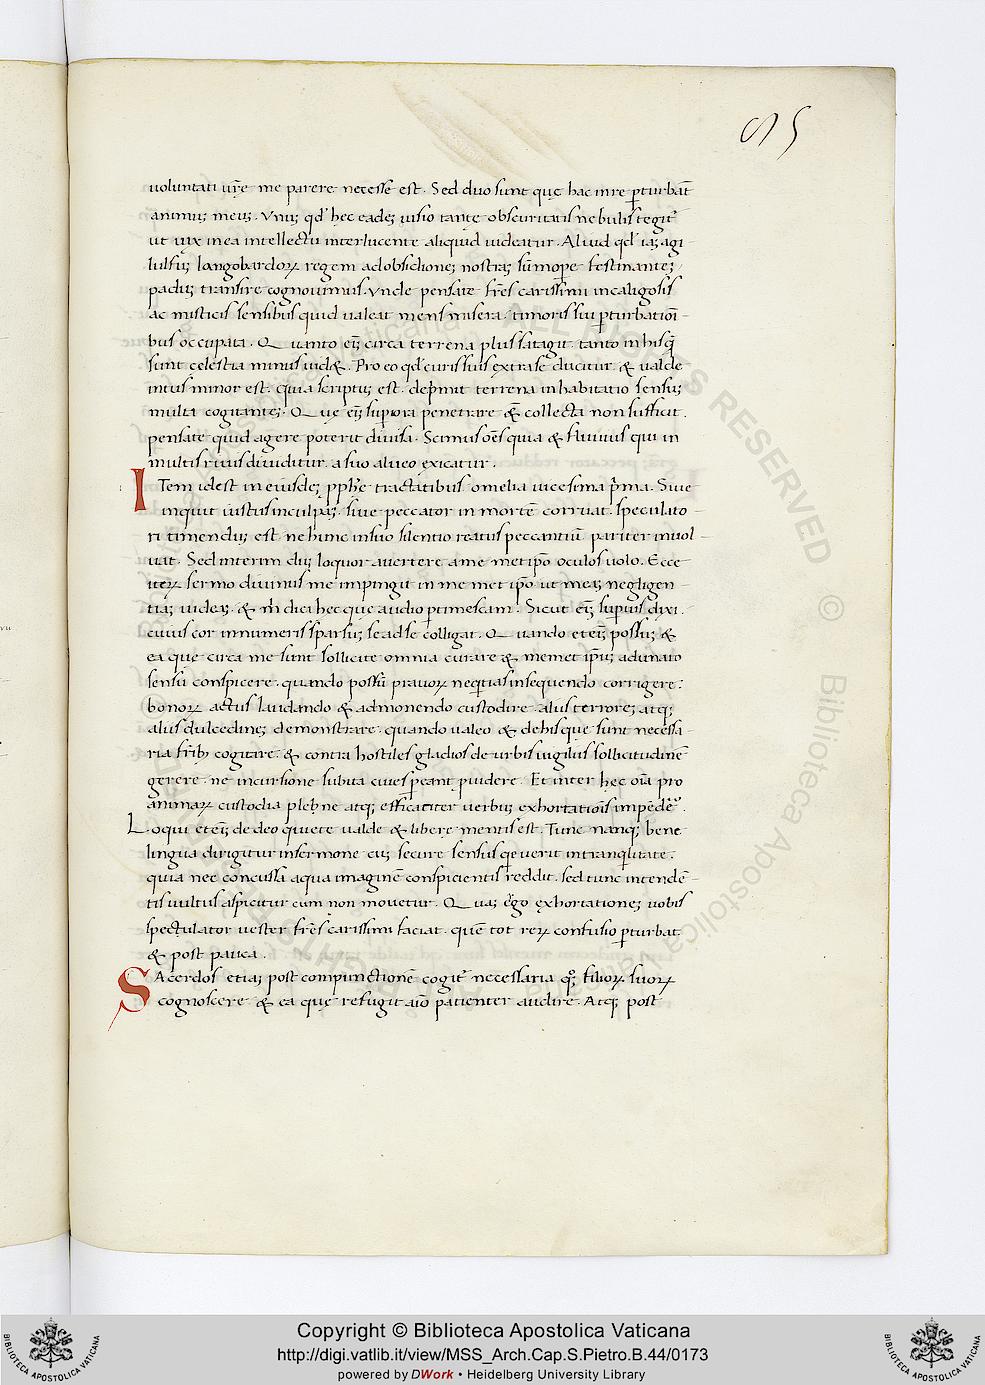 85
voluntati vr̄e me parere necesse est. Sed duo sunt quę hac in re ꝑturbāt
animuꝫ meuꝫ. Vnuꝫ qd̓ hęc eadeꝫ uisio tantę obscuritatis nebulis tegit᷑
ut uix in ea intellectu interlucente aliquid uideatur. Aliud qd̓ iaꝫ agi
lulfuꝫ langobardoꝝ regem ad obsidioneꝫ nostraꝫ sūmoꝑe festinanteꝫ
paduꝫ transire cognouimus. Vnde pensate fr̄es carissimi in caligosis
ac misticis sensibus quid ualeat mens misera. timoris sui ꝑturbatioī-
bus occupata. Quanto eīꝫ circa terrena plus satagit. tanto in his q̄
sunt celestia minus uid&. Pro eo qd̓ curis suis extra se ducitur. & ualde
intus minor est. quia scriptuꝫ est. dep̄mit terrena inhabitatio sensuꝫ
multa cogitanteꝫ. Quę eīꝫ suꝑiora penetrare & collecta non sufficit.
pensate quid agere poterit diuisa. Scimus oēs quia & fluuius qui in
multis riuis diuiditur. a suo alueo exicatur.
ITem idest in eiusdeꝫ ꝓph̄e tractatibus omelia uicesima p̄ma. Siue
inquit iustus in culpaꝫ. siue peccator in mortē corruat. speculato-
ri timenduꝫ est. ne hunc in suo silentio reatus peccantiū pariter inuol-
uat. Sed interim duꝫ loquor auertere a me met ip̄o oculos uolo. Ecce
iteꝝ sermo diuinus me impingit in me met ip̄o ut meaꝫ negligen-
tiaꝫ uideaꝫ. & m̄ dici hec que audio ꝑtimescam. Sicut eīꝫ suꝑius dixi.
cuius cor innumeris sparsuꝫ se ad se colligat. Quando eteīꝫ possuꝫ &
ea que circa me sunt sollicite omnia curare & memet ip̄uꝫ adunato
sensu conspicere. quando possū prauoꝝ neq̇tias insequendo corrigere:
bonoꝝ actus laudando & admonendo custodire. aliis terroreꝫ atqꝫ
aliis dulcedineꝫ demonstrare. quando ualeo & de his que sunt necessa-
ria fr̄ibꝫ cogitare. & contra hostiles gladios de urbis uigiliis sollicitudinē
gerere. ne incursione subita ciues ꝑeant ꝓuidere. Et inter hęc oīa pro
animaꝝ custodia plebne atqꝫ efficaciter uerbuꝫ exhortationis impēdet᷑.
Loqui eteīꝫ de deo quiete ualde & libere mentis est. Tunc nanqꝫ bene
lingua dirigitur in sermone cuꝫ secure sensus q̇euerit in tranq̇llitate.
quia nec concussa aqua imaginē conspicientis reddit. sed tunc intendē-
tis uultus aspicitur cum non mouetur. Quaꝫ ergo exhortationeꝫ uobis
spectulator uester fr̄es carissimi faciat. quē tot reꝝ confusio ꝑturbat
& post pauca.
SAcerdos etiaꝫ post compunctionē cogit᷑ necessaria qꝫ filioꝝ suoꝝ
cognoscere & ea quę refugit aīo patienter audire. Atqꝫ post
Copyright © Biblioteca Apostolica Vaticana
http://digi.vatlib.it/view/MSS_Arch.Cap.S.Pietro.B.44/0173
powered by DWork • Heidelberg University Library